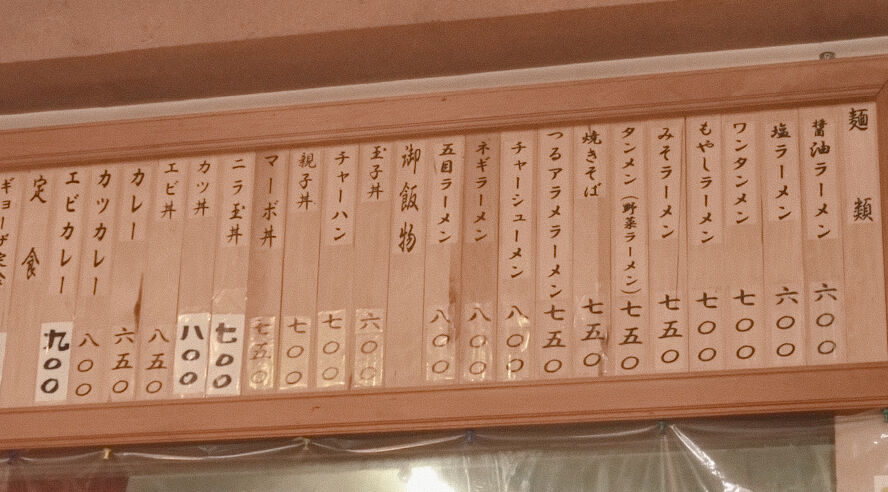 麺類
醤油ラーメン 六〇〇
塩ラーメン 六〇〇
ワンタンメン 七〇〇
もやしラーメン 七〇〇
みそラーメン 七五〇
タンメン(野菜ラーメン) 七五〇
焼きそば 七五〇
つるアラメラーメン 七五〇
チャーシューメン 八〇〇
ネギラーメン 八〇〇
五目ラーメン 八〇〇
御飯物
玉子丼 六〇〇
チャーハン 七〇〇
親子丼 七〇〇
マーボ丼 七五〇
ニラ玉丼 七〇〇
カツ丼 八〇〇
エビ丼 八五〇
カレー 六五〇
カツカレー 八〇〇
エビカレー 九〇〇
定食
ギョーザ定食